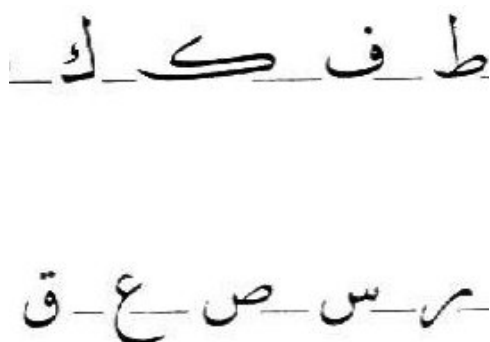 ط ف ک ك
ر س ص ع ق